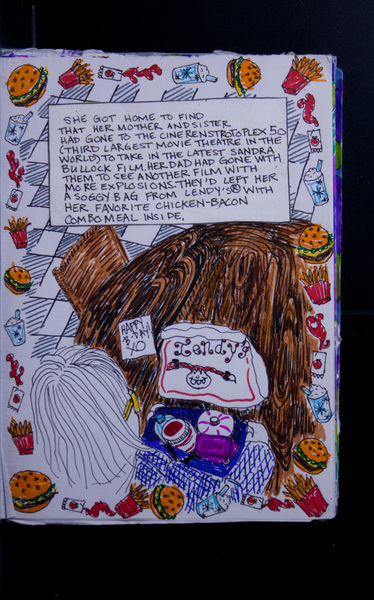 SHE GOT HOME TO FIND
THAT HER MOTHER AND SISTER
HAD GONE TO THE CINERENSTROTOPLEX 50
(THIRD LARGEST MOVIE THEATRE IN THE
WORLD) TO TAKE IN THE LATEST SANDRA
BULLOCK FILM. HER DAD HAD GONE WITH
THEM TO SEE ANOTHER FILM WITH
MORE EXPLOSIONS. THEY'D LEFT HER
A SOGGY BAG FROM LENDY'S® WITH
HER FAVORITE CHICKEN-BACON
COMBO MEAL INSIDE.
HAPPY
Lendy's